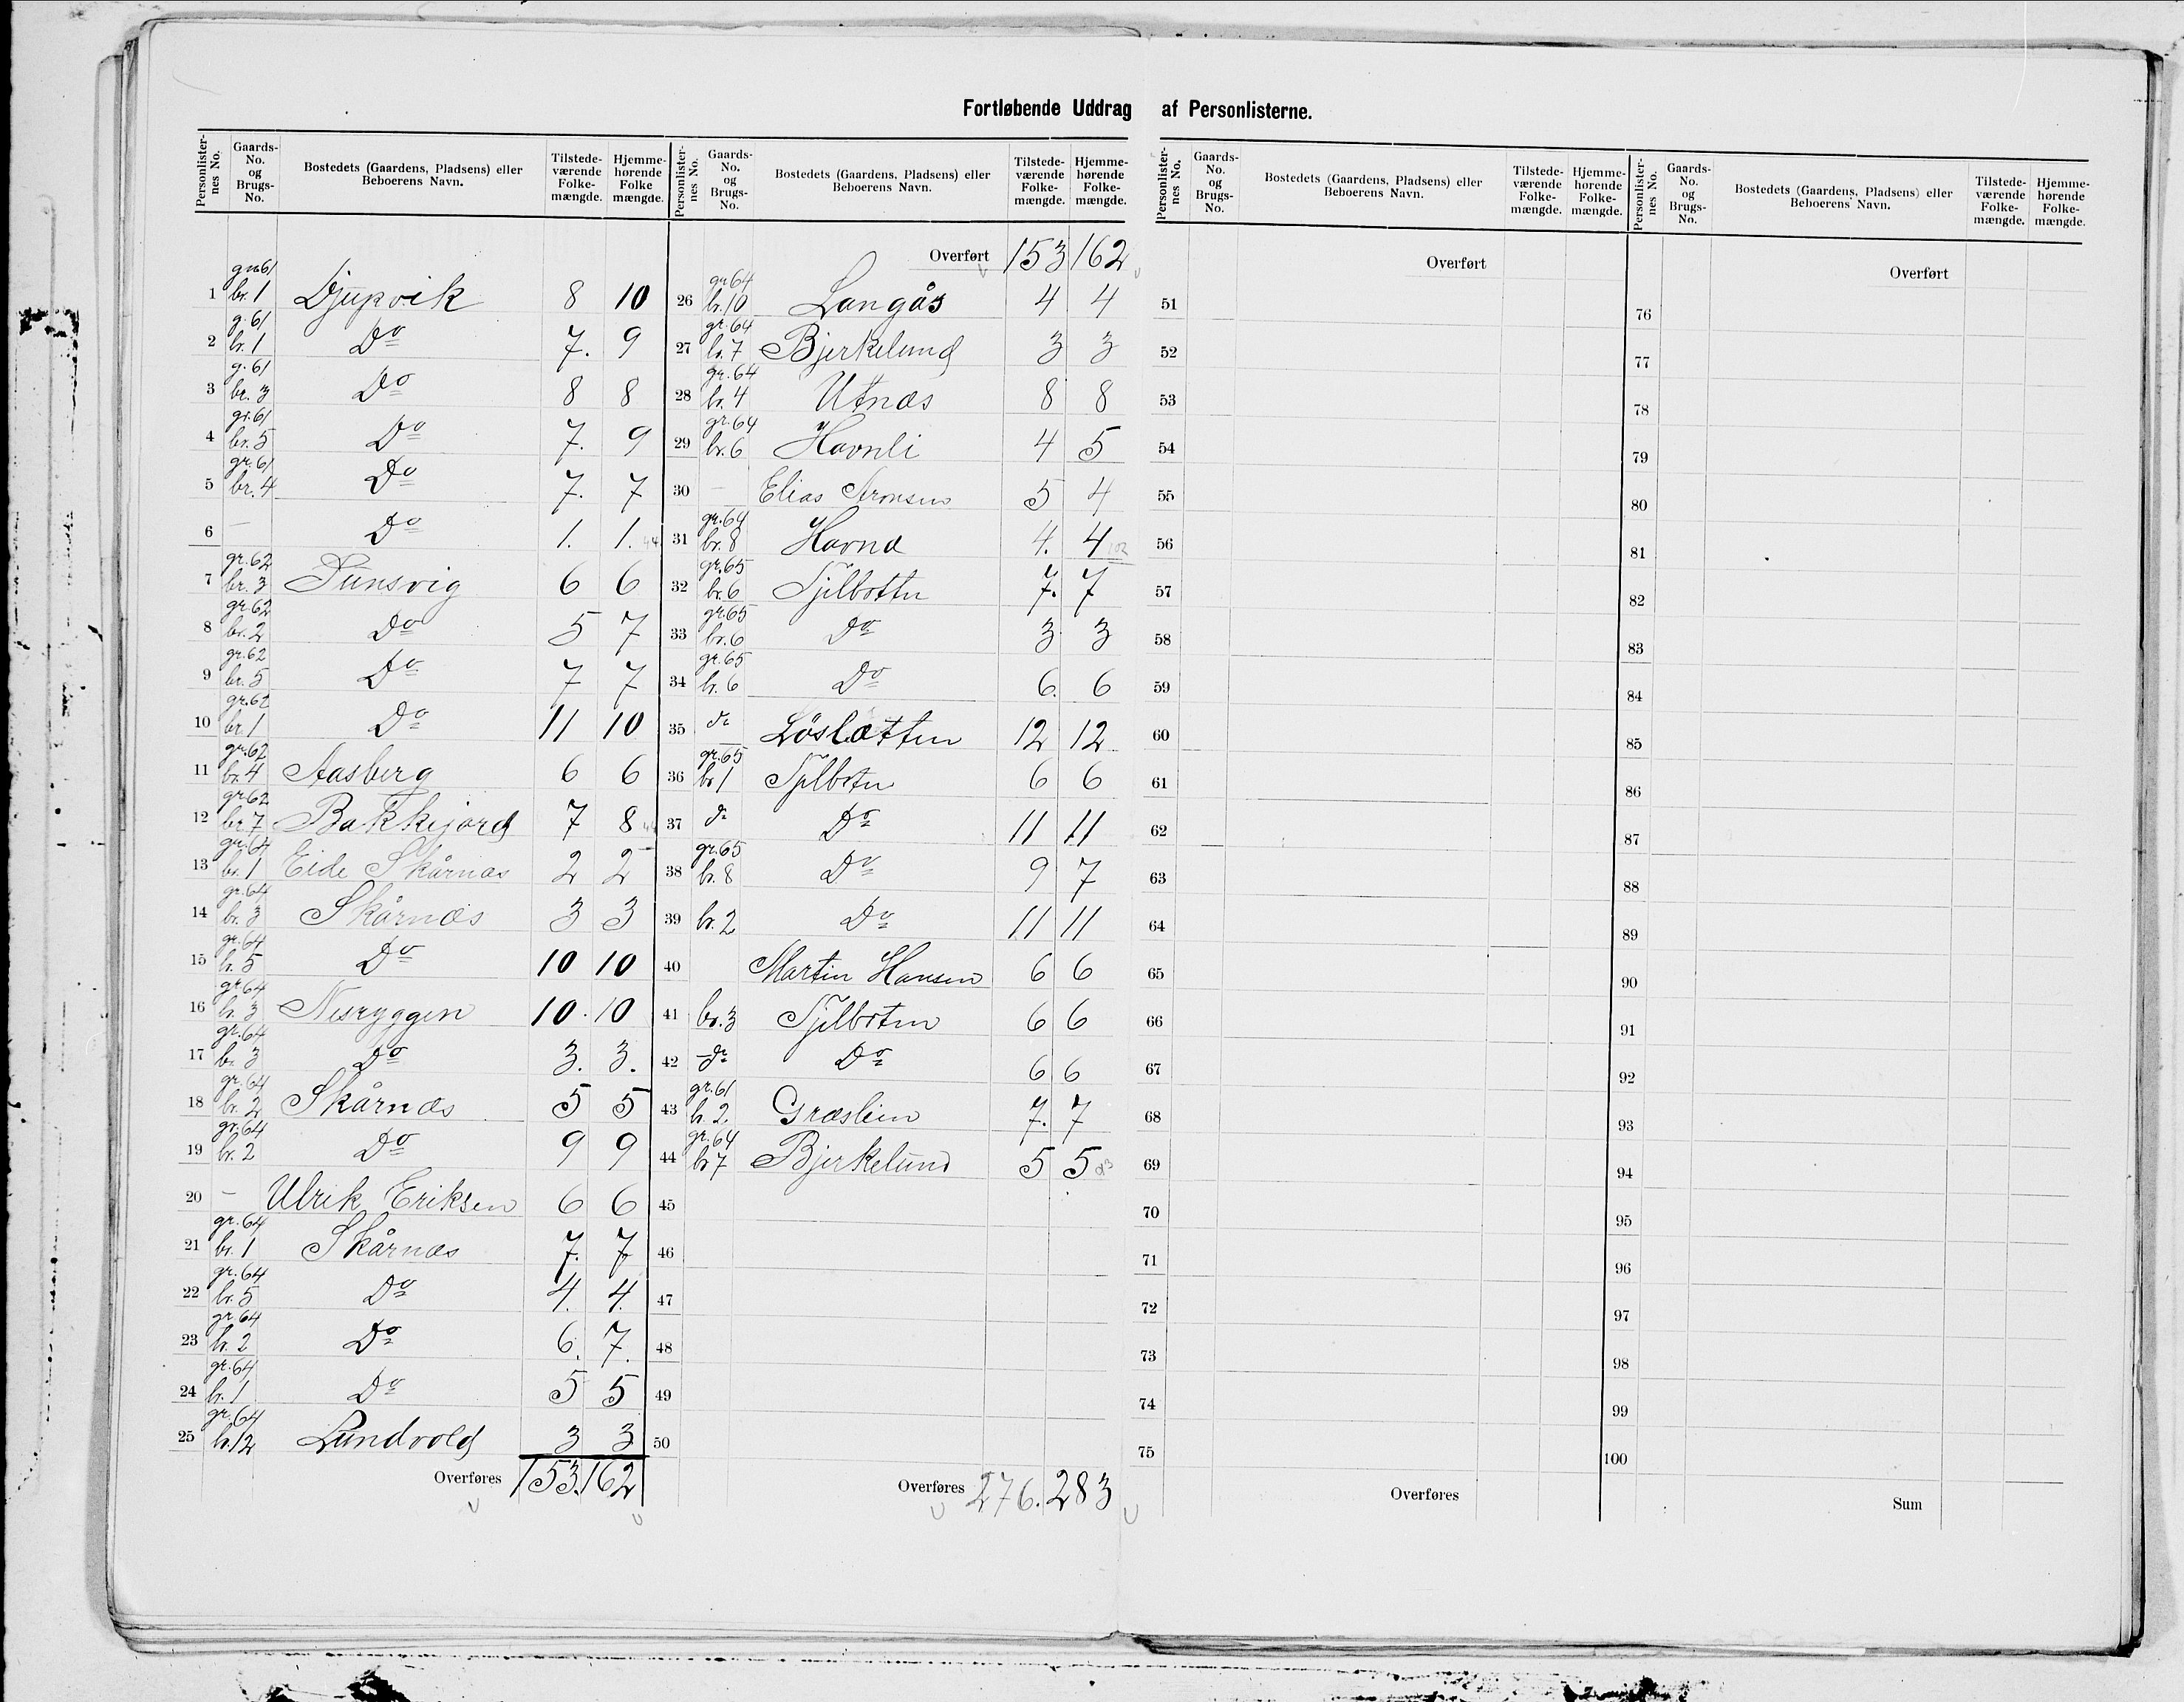 Fortløbende Uddrag af Personlisterne.
Personlister-nes No. Gaards-No. og Brugs-No. Bostedets (Gaardens, Pladsens) eller Beboerens Navn. Tilstede-værende Folke-mængde. Hjemme-hørende Folke mængde.
gr 61 br. 1
1 Djupvik 8 10
g. 61 br. 1
2 Do 7. 9
g. 61 br. 3
3 Do 8 8
gr. 61 br. 5
4 Do 7. 9
gr. 61 br. 4
5 Do 7. 7
6 — Do 1. 1.
gr. 62 br. 3
7 Sunsvig 6 6
gr. 62 br. 2
8 Do 5 7
gr. 62 br. 5
9 Do 7 7
gr. 62 br. 1
10 Do 11 10
gr. 62 br. 4
11 Aasberg 6 6
gr. 62 br. 7
12 Bakkejord 7 8
gr. 64 br. 1
13 Eide Skårnæs 2 2
gr. 64 br. 3
14 Skårnæs 3 3
gr. 64 br. 5
15 Do 10 10
gr. 64 br. 3
16 Nesryggen 10. 10
gr. 64 br. 3
17 Do 3. 3.
gr. 64 br. 2
18 Skårnæs 5 5
gr. 64 br. 2
19 Do 9 9
20 — Ulrik Eriksen 6 6
gr. 64 br. 1
21 Skårnæs 7. 7
gr. 64 br. 5
22 Do 4. 4.
gr 64 br. 2
23 Do 6. 7.
gr. 64 br. 1
24 Do 5 5
gr. 64 br. 12
25 Lundvold 3 3
Overføres 153. 162
Personlister-nes No. Gaards-No. og Brugs-No. Bostedets (Gaardens, Pladsens) eller Beboerens Navn. Tilstede-værende Folke-mængde. Hjemme-hørende Folke-mængde.
Overført 153 162
gr 64 br. 10
26 Langås 4 4
gr. 64 br. 7
27 Bjerkelund 3 3
gr. 64 br. 4
28 Utnæs 8 8
gr. 64 br. 6
29 Havnli 4 5
30 — Elias Aronsen 5 4
gr. 64 br. 8
31 Havnæ 4. 4 102
gr. 65 br. 6
32 Sjilbotten 7. 7
gr. 65 br. 6
33 Do 3 3
gr. 65 br. 6
34 Do 6. 6
35 do Löslætten 12 12
gr. 65 br 1
36 Sjilbotn 6 6
37 do Do 11 11
gr. 65 br. 8
38 Do 9 7
39 br. 2 Do 11 11
40 Martin Hansen 6 6
41 br. 3 Sjilboten 6 6
42 do Do 6 6
gr. 61 br. 2
43 Græslien 7. 7
gr. 64 br 7
44 Bjerkelund 5 5
45
46
47
48
49
50
Overføres 276. 283
Personlister-nes No. Gaards-No. og Brugs-No. Bostedets (Gaardens, Pladsens) eller Beboerens Navn. Tilstede-værende Folke-mængde. Hjemme-hørende Folke-mængde.
Overført
51
52
53
54
55
56
57
58
59
60
61
62
63
64
65
66
67
68
69
70
71
72
73
74
75
Overføres
Personlister-nes No. Gaards-No. og Brugs-No. Bostedets (Gaardens, Pladsens) eller Beboerens Navn. Tilstede-værende Folke-mængde. Hjemme-hørende Folke-mængde.
Overført
76
77
78
79
80
81
82
83
84
85
86
87
88
89
90
91
92
93
94
95
96
97
98
99
100
Sum